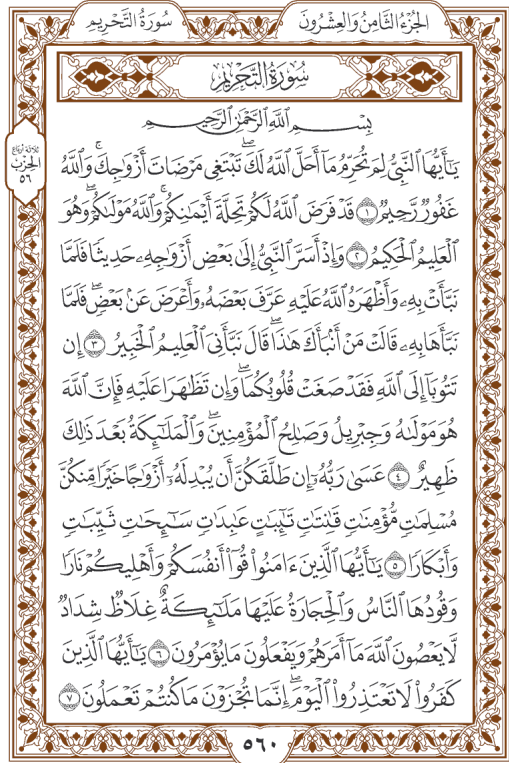 سُورَةُ التَّحْرِيمِ
الجُزْءُ الثَّامِنُ وَالعِشْرُونَ
سُورَةُ التَّحْرِيمِ
بِسْمِ ٱللَّهِ ٱلرَّحْمَٰنِ ٱلرَّحِيمِ
ثلاثة أرباع
الحزب
٥٦
يَٰٓأَيُّهَا ٱلنَّبِيُّ لِمَ تُحَرِّمُ مَآ أَحَلَّ ٱللَّهُ لَكَۖ تَبْتَغِي مَرْضَاتَ أَزْوَٰجِكَۚ وَٱللَّهُ
غَفُورٌ رَّحِيمٌ ١ قَدْ فَرَضَ ٱللَّهُ لَكُمْ تَحِلَّةَ أَيْمَٰنِكُمْۚ وَٱللَّهُ مَوْلَىٰكُمْۖ وَهُوَ
ٱلْعَلِيمُ ٱلْحَكِيمُ ٢ وَإِذْ أَسَرَّ ٱلنَّبِيُّ إِلَىٰ بَعْضِ أَزْوَٰجِهِۦ حَدِيثًا فَلَمَّا
نَبَّأَتْ بِهِۦ وَأَظْهَرَهُ ٱللَّهُ عَلَيْهِ عَرَّفَ بَعْضَهُۥ وَأَعْرَضَ عَنۢ بَعْضٍۖ فَلَمَّا
نَبَّأَهَا بِهِۦ قَالَتْ مَنْ أَنۢبَأَكَ هَٰذَاۖ قَالَ نَبَّأَنِيَ ٱلْعَلِيمُ ٱلْخَبِيرُ ٣ إِن
تَتُوبَآ إِلَى ٱللَّهِ فَقَدْ صَغَتْ قُلُوبُكُمَاۖ وَإِن تَظَٰهَرَا عَلَيْهِ فَإِنَّ ٱللَّهَ
هُوَ مَوْلَىٰهُ وَجِبْرِيلُ وَصَٰلِحُ ٱلْمُؤْمِنِينَۖ وَٱلْمَلَٰٓئِكَةُ بَعْدَ ذَٰلِكَ
ظَهِيرٌ ٤ عَسَىٰ رَبُّهُۥٓ إِن طَلَّقَكُنَّ أَن يُبْدِلَهُۥٓ أَزْوَٰجًا خَيْرًا مِّنكُنَّ
مُسْلِمَٰتٍ مُّؤْمِنَٰتٍ قَٰنِتَٰتٍ تَٰٓئِبَٰتٍ عَٰبِدَٰتٍ سَٰٓئِحَٰتٍ ثَيِّبَٰتٍ
وَأَبْكَارًا ٥ يَٰٓأَيُّهَا ٱلَّذِينَ ءَامَنُوا۟ قُوٓا۟ أَنفُسَكُمْ وَأَهْلِيكُمْ نَارًا
وَقُودُهَا ٱلنَّاسُ وَٱلْحِجَارَةُ عَلَيْهَا مَلَٰٓئِكَةٌ غِلَاظٌ شِدَادٌ
لَّا يَعْصُونَ ٱللَّهَ مَآ أَمَرَهُمْ وَيَفْعَلُونَ مَا يُؤْمَرُونَ ٦ يَٰٓأَيُّهَا ٱلَّذِينَ
كَفَرُوا۟ لَا تَعْتَذِرُوا۟ ٱلْيَوْمَۖ إِنَّمَا تُجْزَوْنَ مَا كُنتُمْ تَعْمَلُونَ ٧
٥٦٠